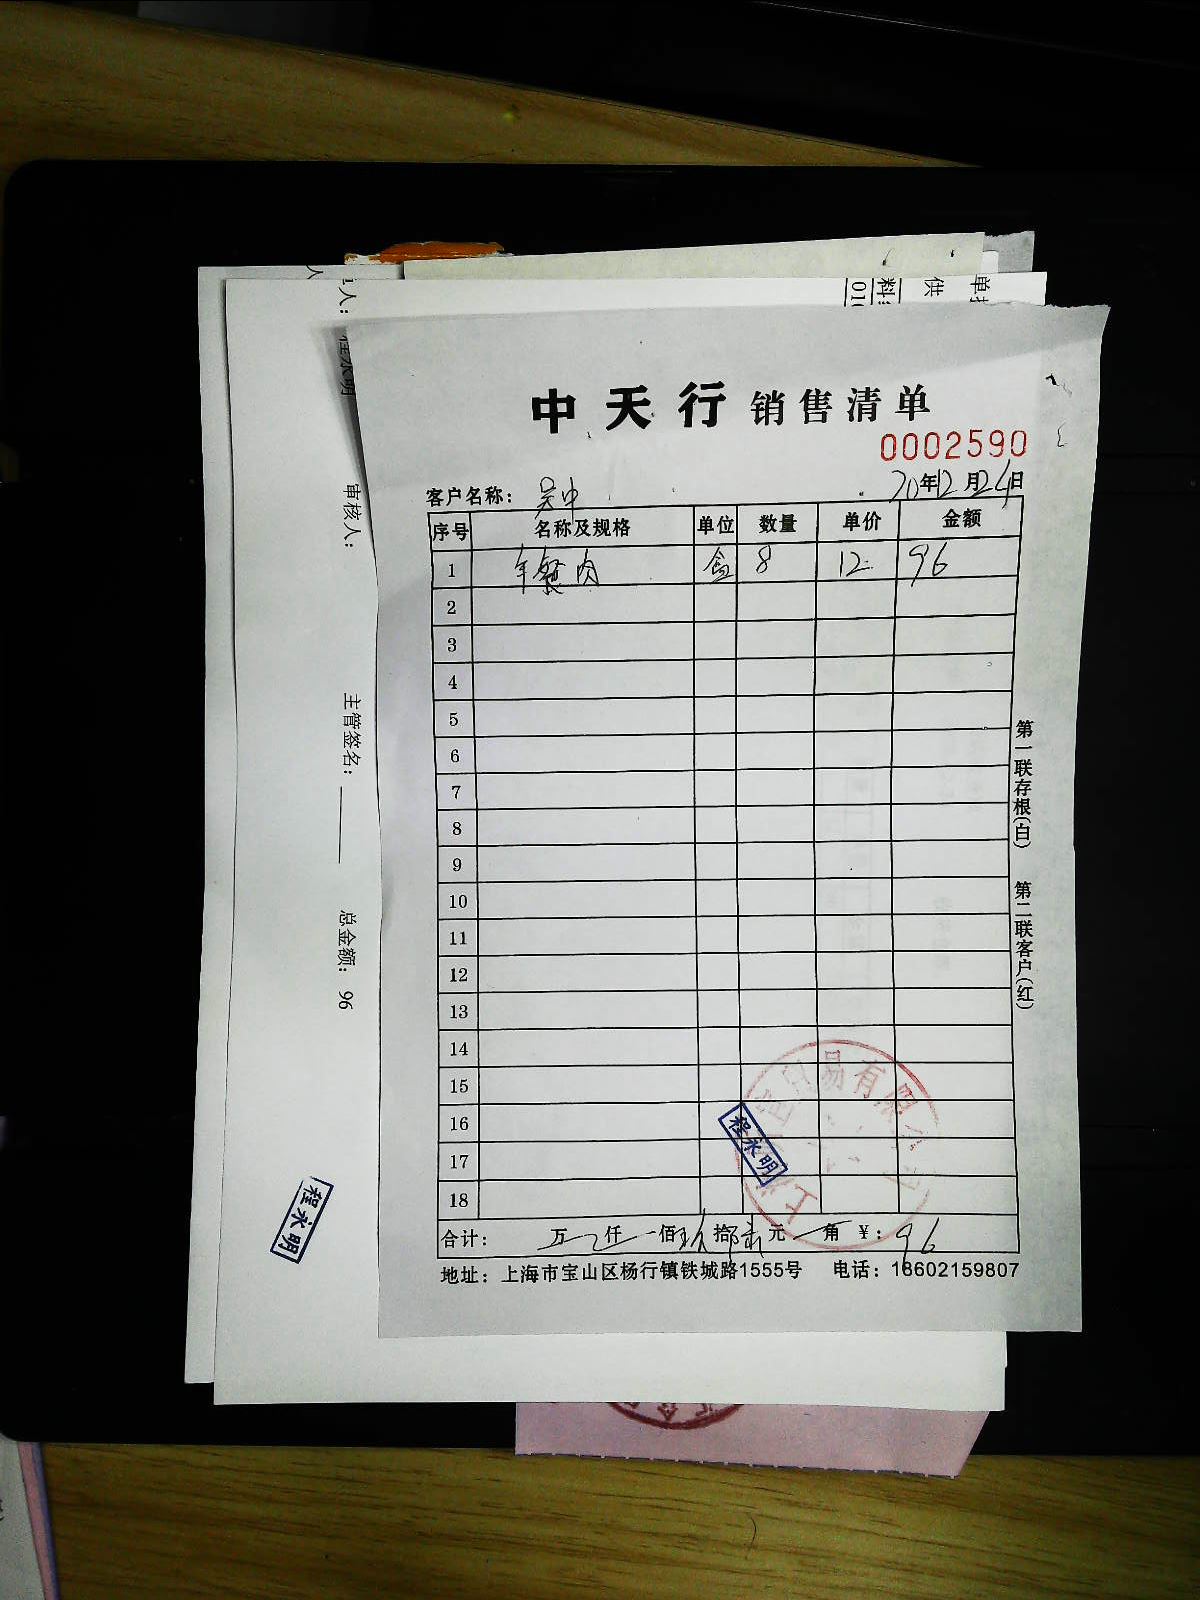 中天行 销售清单
0002590
客户名称: 吴中 20年12月24日
序号 名称及规格 单位 数量 单价 金额
1 午餐肉 盒 8 12 96
2
3
4
5
6
7
8
9
10
11
12
13
14
15
16
17
18
合计: 万 仟 佰 玖 拾 陆 元 角 ¥: 96
地址: 上海市宝山区杨行镇铁城路1555号 电话: 18602159807
第一联存根(白) 第二联客户(红)
贸易有限公司
程永明
人: 程永明
审核人:
主管签名:
总金额: 96
程永明
供
料: